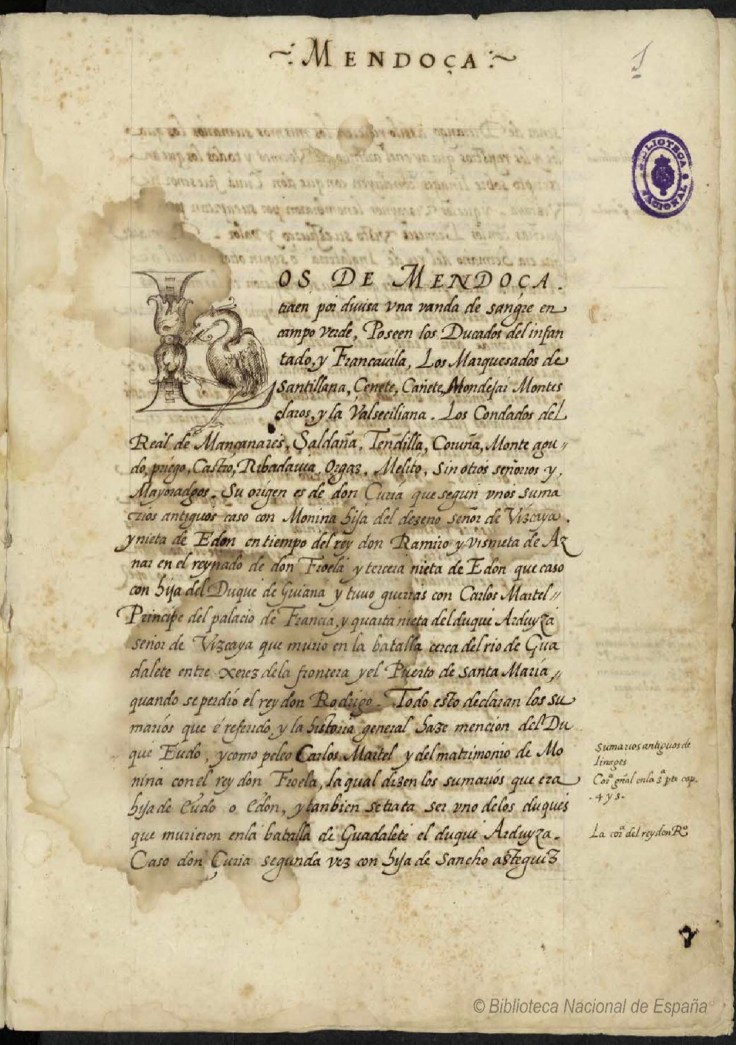 ~: MENDOÇA :~
1
BIBLIOTECA NACIONAL
LOS DE MENDOÇA.
traen por diuisa vna vanda de sangre en
campo verde, Poseen los Ducados del infan
tado, y Francauila, Los Marquesados de
Santillana, Cenete, Cañete, Mondejar Montes
claros, y la Valseciliana. Los Condados del
Real de Mançanares, Saldaña, Tendilla, Coruña, Monte agu„
do, priego, Castro, Ribadauia, Orgaz, Melito, Sin otros señorios y
Mayoradgos. Su origen es de don Curia que segun vnos suma
rios antiguos caso con Monina hija del dezeno señor de Vizcaya,
y nieta de Edon en tiempo del rey don Ramiro y visnieta de Az
nar en el reynado de don Froela y tercera nieta de Edon que caso
con hija del Duque de Guiana y tuuo guerras con Carlos Martel„
Principe del palacio de Francia, y quarta nieta del duque Arduyza
señor de Vizcaya que murio en la batalla cerca del rio de Gua
dalete entre xerez de la frontera y el Puerto de Santa Maria,
quando se perdio el rey don Rodrigo. Todo esto declaran los su
marios que é referido, y la historia general haze mencion del Du
que Eudo, y como peleo Carlos Martel y del matrimonio de Mo
nina con el rey don Froela, la qual dizen los sumarios que era
hija de Eudo o Edon, y tanbien se trata ser vno de los duques
que murieron en la batalla de Guadalete el duque Arduyza.
Caso don Curia segunda vez con hija de Sancho asteguiz
Sumarios antiguos de
linages
Coª gñal en la 3ª pte cap.
4 y 5.
La coª del rey don Rº
© Biblioteca Nacional de España